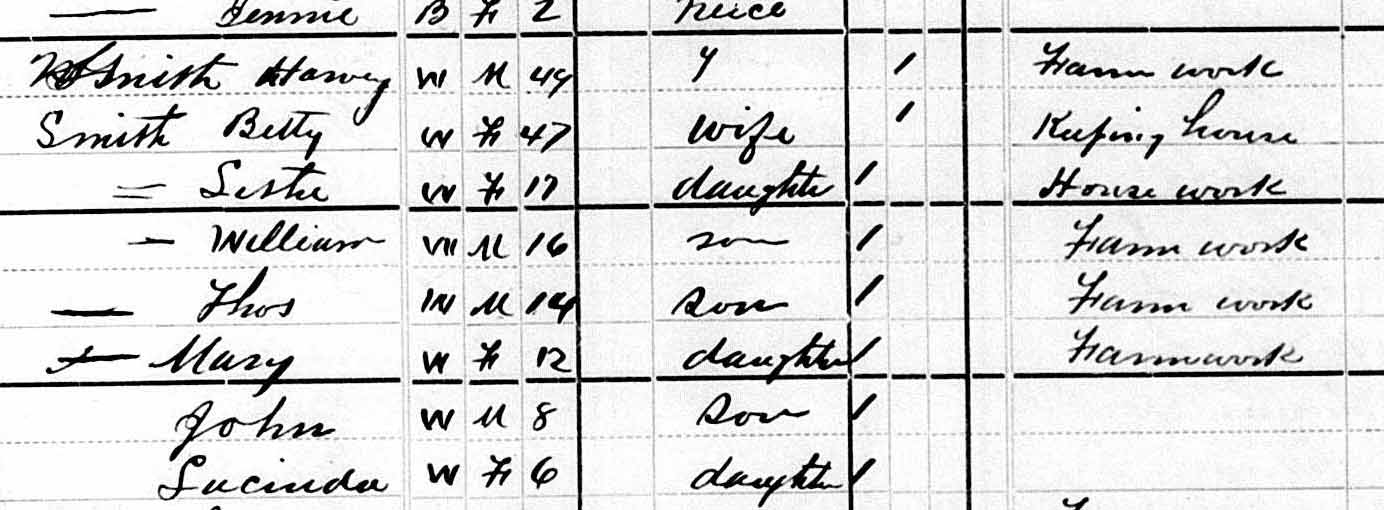 — Jennie B F 2 neice
Smith Harvey W M 49 y / Farm work
Smith Betty W F 47 wife / Keeping house
= W F 17 daughter / House work
— William W M 16 son / Farm work
— Thos W M 14 son / Farm work
— Mary W F 12 daughter / Farm work
John W M 8 son /
Lucinda W F 6 daughter /